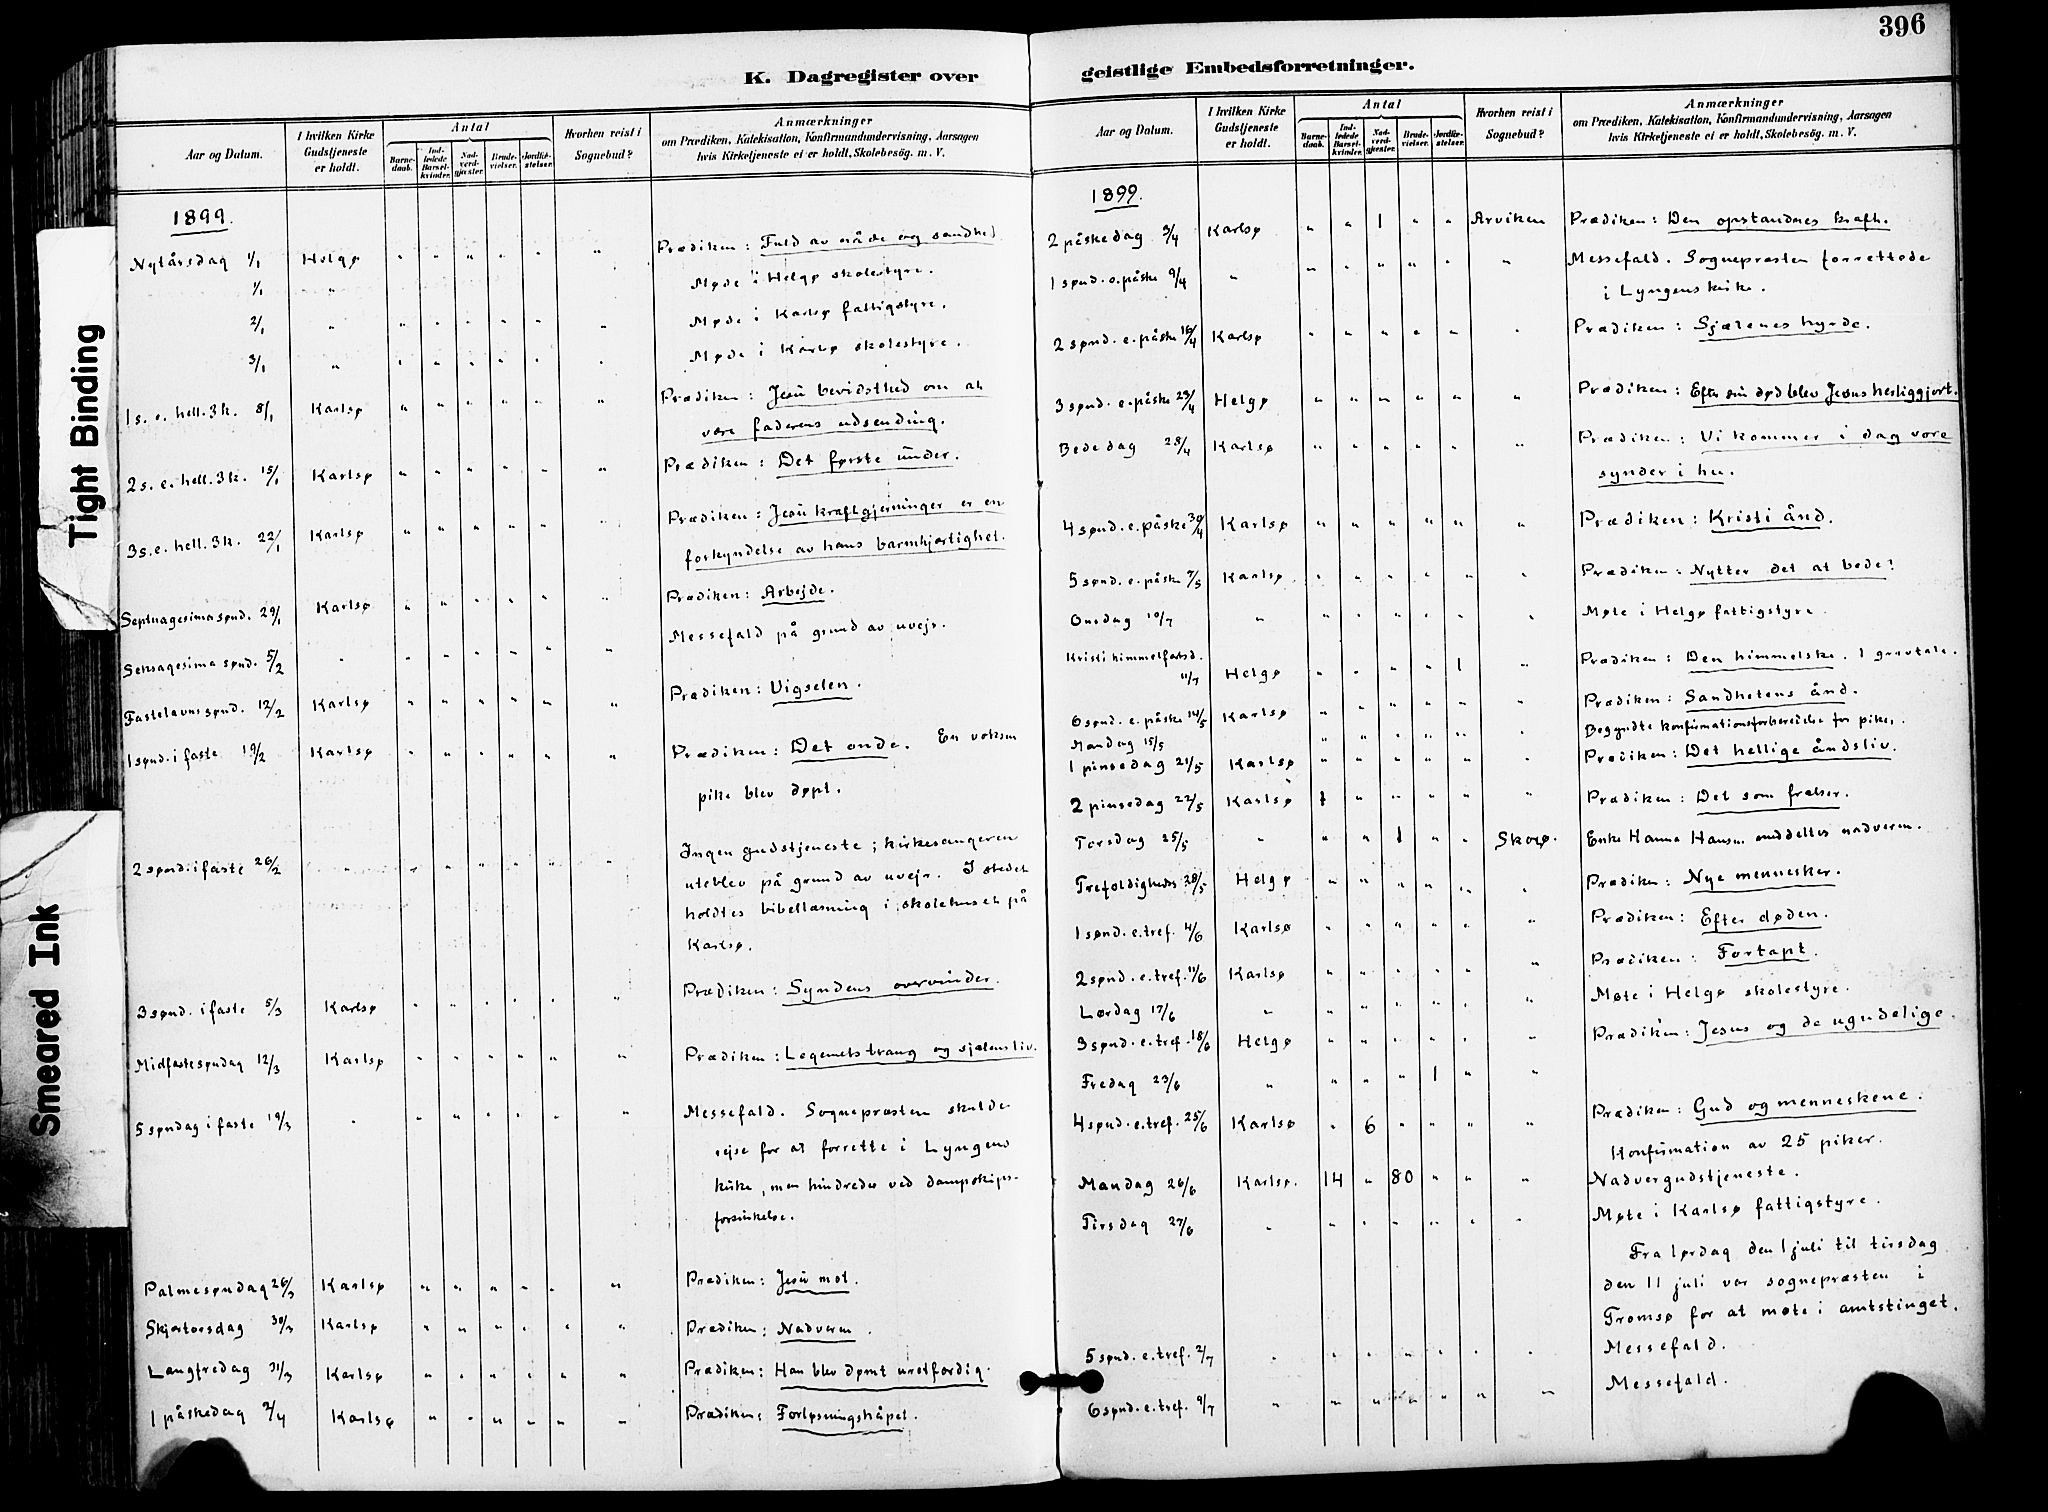 396
K. Dagregister over geistlige Embedsforretninger.
Tight Binding
Smeared Ink
Aar og Datum.
I hvilken Kirke Gudstjeneste er holdt.
Antal
Barne-daab.
Ind-ledede Barsel-kvinder.
Nad-verd-gjæster.
Brude-vielser.
Jordfæ-stelser.
Hvorhen reist i Sognebud?
Anmærkninger
om Prædiken, Katekisation, Konfirmandundervisning, Aarsagen
hvis Kirketjeneste ei er holdt, Skolebesög. m. V.
1899.
Nytårsdag 1/1 Helgø " " " " " " Prædiken: Fuld av nåde og sandhed
1/1 " Møde i Helgø skolestyre.
2/1 " " " " " " " Møde i Karlsø fattigstyre.
3/1 " " " " " " " Møde i Karlsø skolestyre.
1 s. e. hell. 3 k. 8/1 Karlsø " " " " " " Prædiken: Jesu bevidsthed om at
være faderens udsending.
2 s. e. hell. 3 k. 15/1 Karlsø " " " " " " Prædiken: Det første under.
3 s. e. hell. 3 k. 22/1 Karlsø " " " " " " Prædiken: Jesu kraftgjerninger er en
forkyndelse av hans barmhjærtighet.
Septuagesima sønd. 29/1 Karlsø " " " " " " Prædiken: Arbejde.
Seksagesima sønd. 5/2 " " " " " " " Messefald på grund av uvejr.
Fastelavnssønd. 12/2 Karlsø " " " " " " Prædiken: Vigselen.
1 sønd. i faste 19/2 Karlsø " " " " " " Prædiken: Det onde. En voksen
pike blev døpt.
2 sønd. i faste 26/2 " " " " " " " Ingen gudstjeneste; kirkesangeren
uteblev på grund av uvejr. I stedet
holdtes bibellæsning i skolehuset på
Karlsø.
3 sønd. i faste 5/3 Karlsø " " " " " " Prædiken: Syndens overvinder.
Midfastesøndag 12/3 Karlsø " " " " " " Prædiken: Legemets trang og sjælens liv.
5 søndag i faste 19/3 " " " " " " " Messefald. Sognepræsten skulde
rejse for at forrette i Lyngens
kirke, men hindredes ved dampskips-
forsinkelse.
Palmesøndag 26/3 Karlsø " " " " " " Prædiken: Jesu mot.
Skjærtorsdag 30/3 Karlsø " " " " " " Prædiken: Nadveren.
Langfredag 31/3 Karlsø " " " " " " Prædiken: Han blev dømt uretfærdig.
1 påskedag 2/4 Karlsø " " " " " " Prædiken: Forløsningshåpet.
Aar og Datum.
I hvilken Kirke Gudstjeneste er holdt.
Antal
Barne-daab.
Ind-ledede Barsel-kvinder.
Nad-verd-gjæster.
Brude-vielser.
Jordfæ-stelser.
Hvorhen reist i Sognebud?
Anmærkninger
om Prædiken, Katekisation, Konfirmandundervisning, Aarsagen
hvis Kirketjeneste ei er holdt, Skolebesög. m. V.
1899.
2 påskedag 3/4 Karlsø " " 1 " " Arviken Prædiken: Den opstandnes kraft.
1 sønd. e. påske 9/4 " " " " " " " Messefald. Sognepræsten forrettede
i Lyngens kirke.
2 sønd. e. påske 16/4 Karlsø " " " " " " Prædiken: Sjælenes hyrde.
3 sønd. e. påske 23/4 Helgø " " " " " " Prædiken: Efter sin død blev Jesus herliggjort.
Bededag 28/4 Karlsø " " " " " " Prædiken: Vi kommer i dag vore
synder i hu.
4 sønd. e. påske 30/4 Karlsø " " " " " " Prædiken: Kristi ånd.
5 sønd. e. påske 7/5 Karlsø " " " " " " Prædiken: Nytter det at bede?
Onsdag 10/7 " " " " " " " Møte i Helgø fattigstyre.
Kristi himmelfartsd. 11/7 Helgø " " " " 1 " Prædiken: Den himmelske. 1 gravtale.
6 sønd. e. påske 14/5 Karlsø " " " " " " Prædiken: Sandhetens ånd.
Mandag 15/5 " " " " " " Begyndte konfirmationsforberedelse for piker.
1 pinsedag 21/5 Karlsø " " " " " " Prædiken: Det hellige åndsliv.
2 pinsedag 22/5 Karlsø 1 " " " " " Prædiken: Det som frelser.
Torsdag 25/5 " " " 1 " " Skorø. Enke Hanna Hansen meddeltes nadveren.
Trefoldighedss 28/5 Helgø " " " " " " Prædiken: Nye mennesker.
1 sønd. e. tref. 4/6 Karlsø " " " " " " Prædiken: Efter døden.
2 sønd. e. tref. 11/6 Karlsø " " " " " " Prædiken: Fortapt.
Lørdag 17/6 " " " " " " " Møte i Helgø skolestyre.
3 sønd. e. tref. 18/6 Helgø " " " " " " Prædiken: Jesus og de ugudelige.
Fredag 23/6 " " " " 1 " "
4 sønd. e. tref. 25/6 Karlsø " 6 " " " " Prædiken: Gud og menneskene.
Konfirmation av 25 piker.
Mandag 26/6 Karlsø. 14 " 80 " " " Nadvergudstjeneste.
Tirsdag 27/6 " " " " " " " Møte i Karlsø fattigstyre.
Fra lørdag den 1 juli til tirsdag
den 11 juli var sognepræsten i
Tromsø for at møte i amtstinget.
5 sønd. e. tref. 2/7 " " " " " " " Messefald.
6 sønd. e. tref. 9/7 " " " " " " " Messefald.